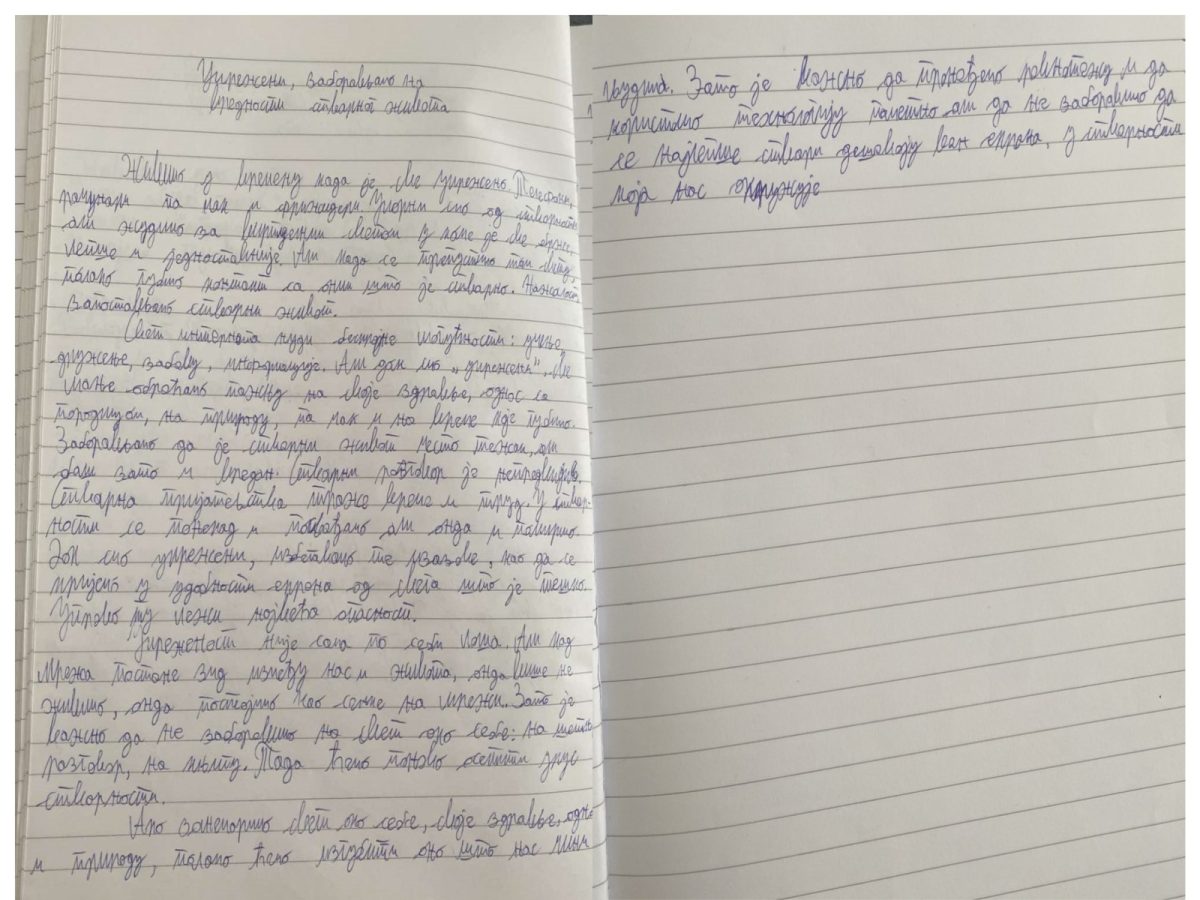 Умрежени, заборављамо на
вредности стварног живота
Живимо у времену када је све умрежено. Телефони,
рачунари па чак и фрижидери. Уморни смо од стварности
али жудимо за виртуелним светом у коме је све брже,
лепше и једноставније. Али када се препустимо том свету,
полако губимо контакт са оним што је стварно. Нажалост,
запостављамо стварни живот.
Свет интернета нуди бескрајне могућности: учење,
дружење, забаву, информације. Али док смо „умрежени“, све
мање обраћамо пажњу на своје здравље, однос са
породицом, на природу, па чак и на време које губимо.
Заборављамо да је стварни живот често тежак, али
баш зато и вредан. Стварни разговор је непредвидив.
Стварна пријатељства траже време и труд. У ствар-
ности се понекад и посвађамо али онда и помиримо.
Док смо умрежени, избегавамо те изазове, као да се
кријемо у удобности екрана од свега што је тешко.
Управо ту лежи највећа опасност.
Умреженост није сама по себи лоша. Али кад
мрежа постане зид између нас и живота, онда више не
живимо, онда постојимо као сенке на мрежи. Зато је
важно да не заборавимо на свет око себе: на шетњу
разговор, на књигу. Тада ћемо поново осетити укус
стварности.
Ако занемаримо свет око себе, своје здравље, однос
и природу, полако ћемо изгубити оно што нас чини
људима. Зато је важно да пронађемо равнотежу и да
користимо технологију паметно али да не заборавимо да
се најлепше ствари дешавају ван екрана, у стварности
која нас окружује